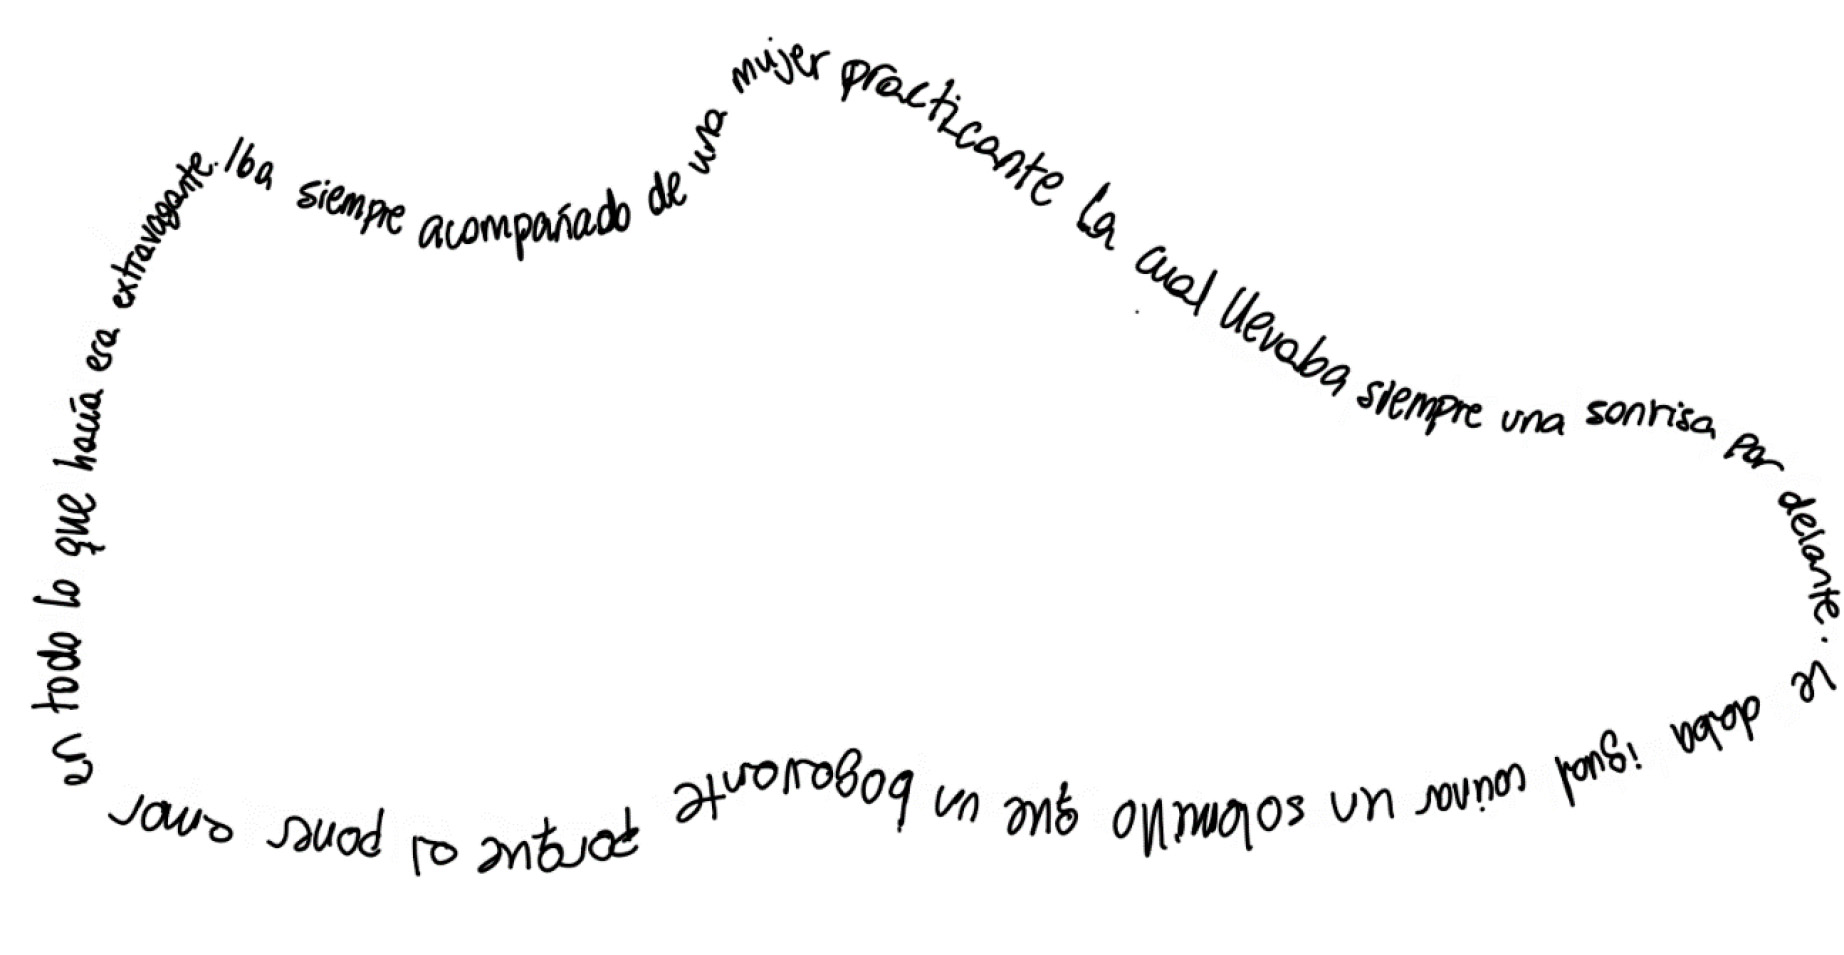 Iba siempre acompañado de una mujer practicante la cual llevaba siempre una sonrisa por delante. Le daba igual cocinar un solomillo que un bogavante porque al poner amor en todo lo que hacía era extravagante.